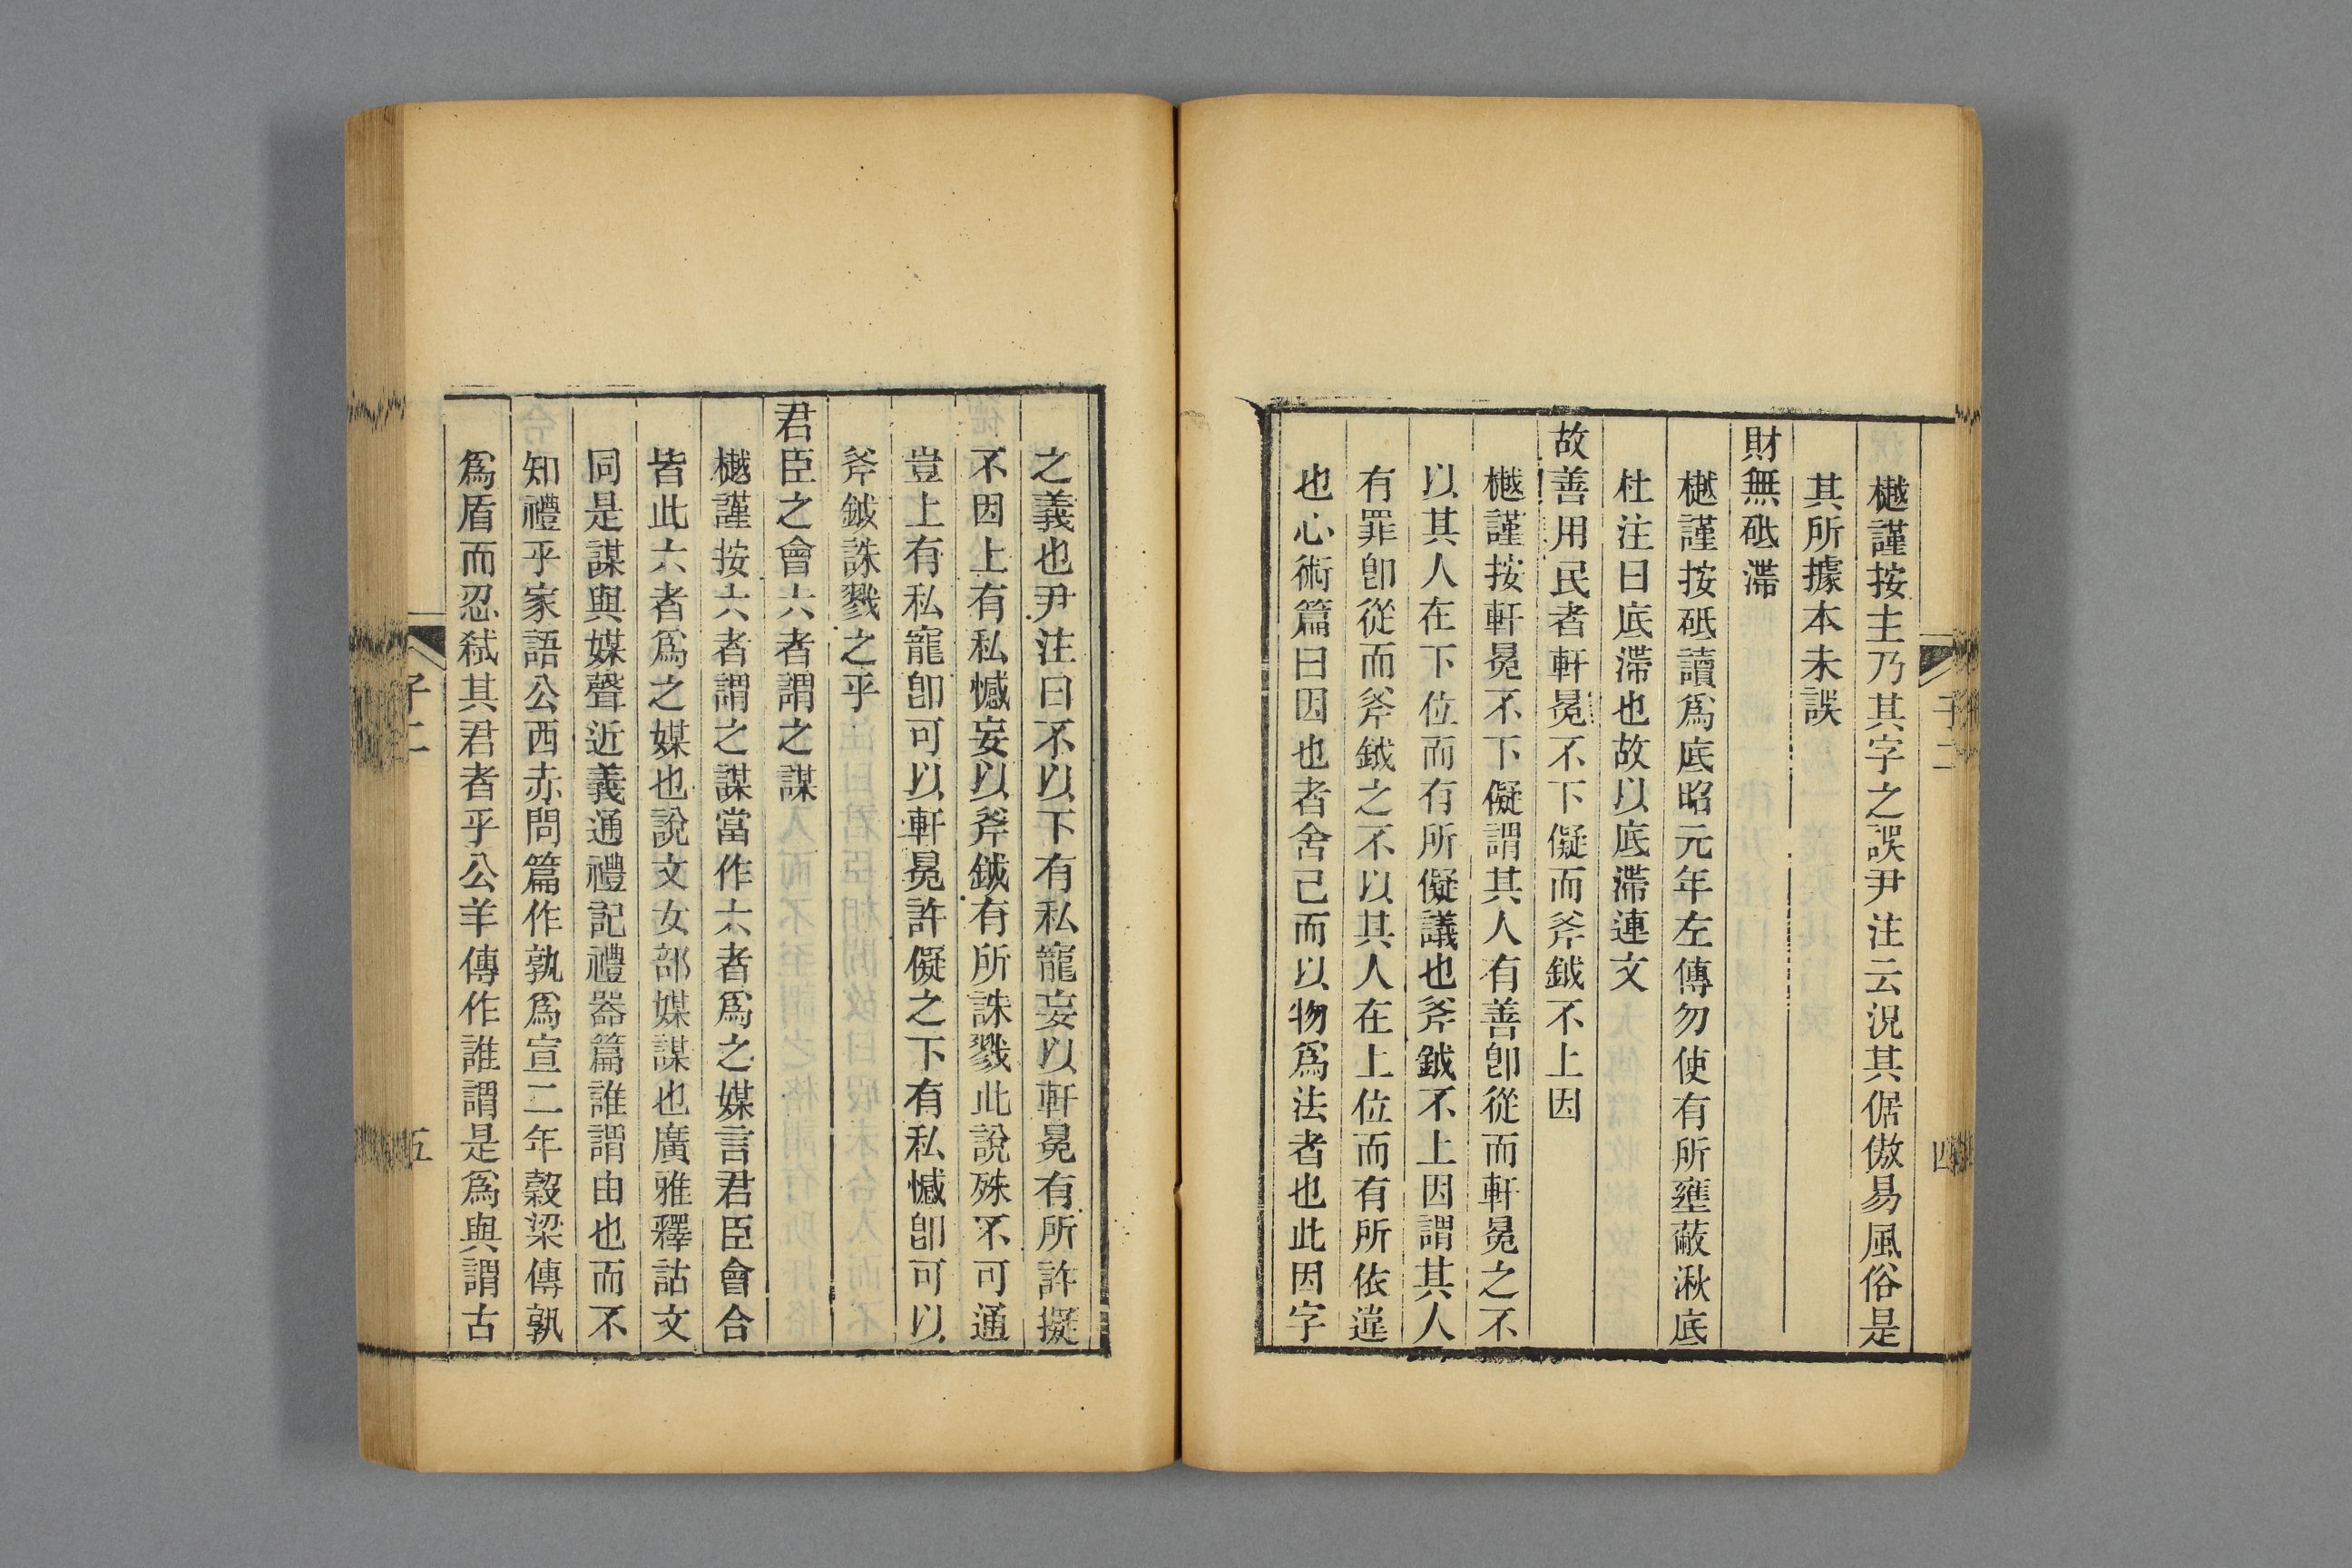 樾謹按主乃其字之誤尹注云況其倨傲易風俗是
其所據本未誤
財無砥滯
樾謹按砥讀爲底昭元年左傳勿使有所壅蔽湫底
杜注曰底滯也故以底滯連文
故善用民者軒冕不下儗而斧鉞不上因
樾謹按軒冕不下儗謂其人有善卽從而軒冕之不
以其人在下位而有所儗議也斧鉞不上因謂其人
有罪卽從而斧鉞之不以其人在上位而有所依違
也心術篇曰因也者舍己而以物爲法者也此因字
子二
四
之義也尹注曰不以下有私寵妄以軒冕有所許擬
不因上有私憾妄以斧鉞有所誅戮此說殊不可通
豈上有私寵卽可以軒冕許儗之下有私憾卽可以
斧鉞誅戮之乎
君臣之會六者謂之謀
樾謹按六者謂之謀當作六者爲之媒言君臣會合
皆此六者爲之媒也說文女部媒謀也廣雅釋詁文
同是謀與媒聲近義通禮記禮器篇誰謂由也而不
知禮乎家語公西赤問篇作孰爲宣二年穀梁傳孰
爲盾而忍弑其君者乎公羊傳作誰謂是爲與謂古
子二
五